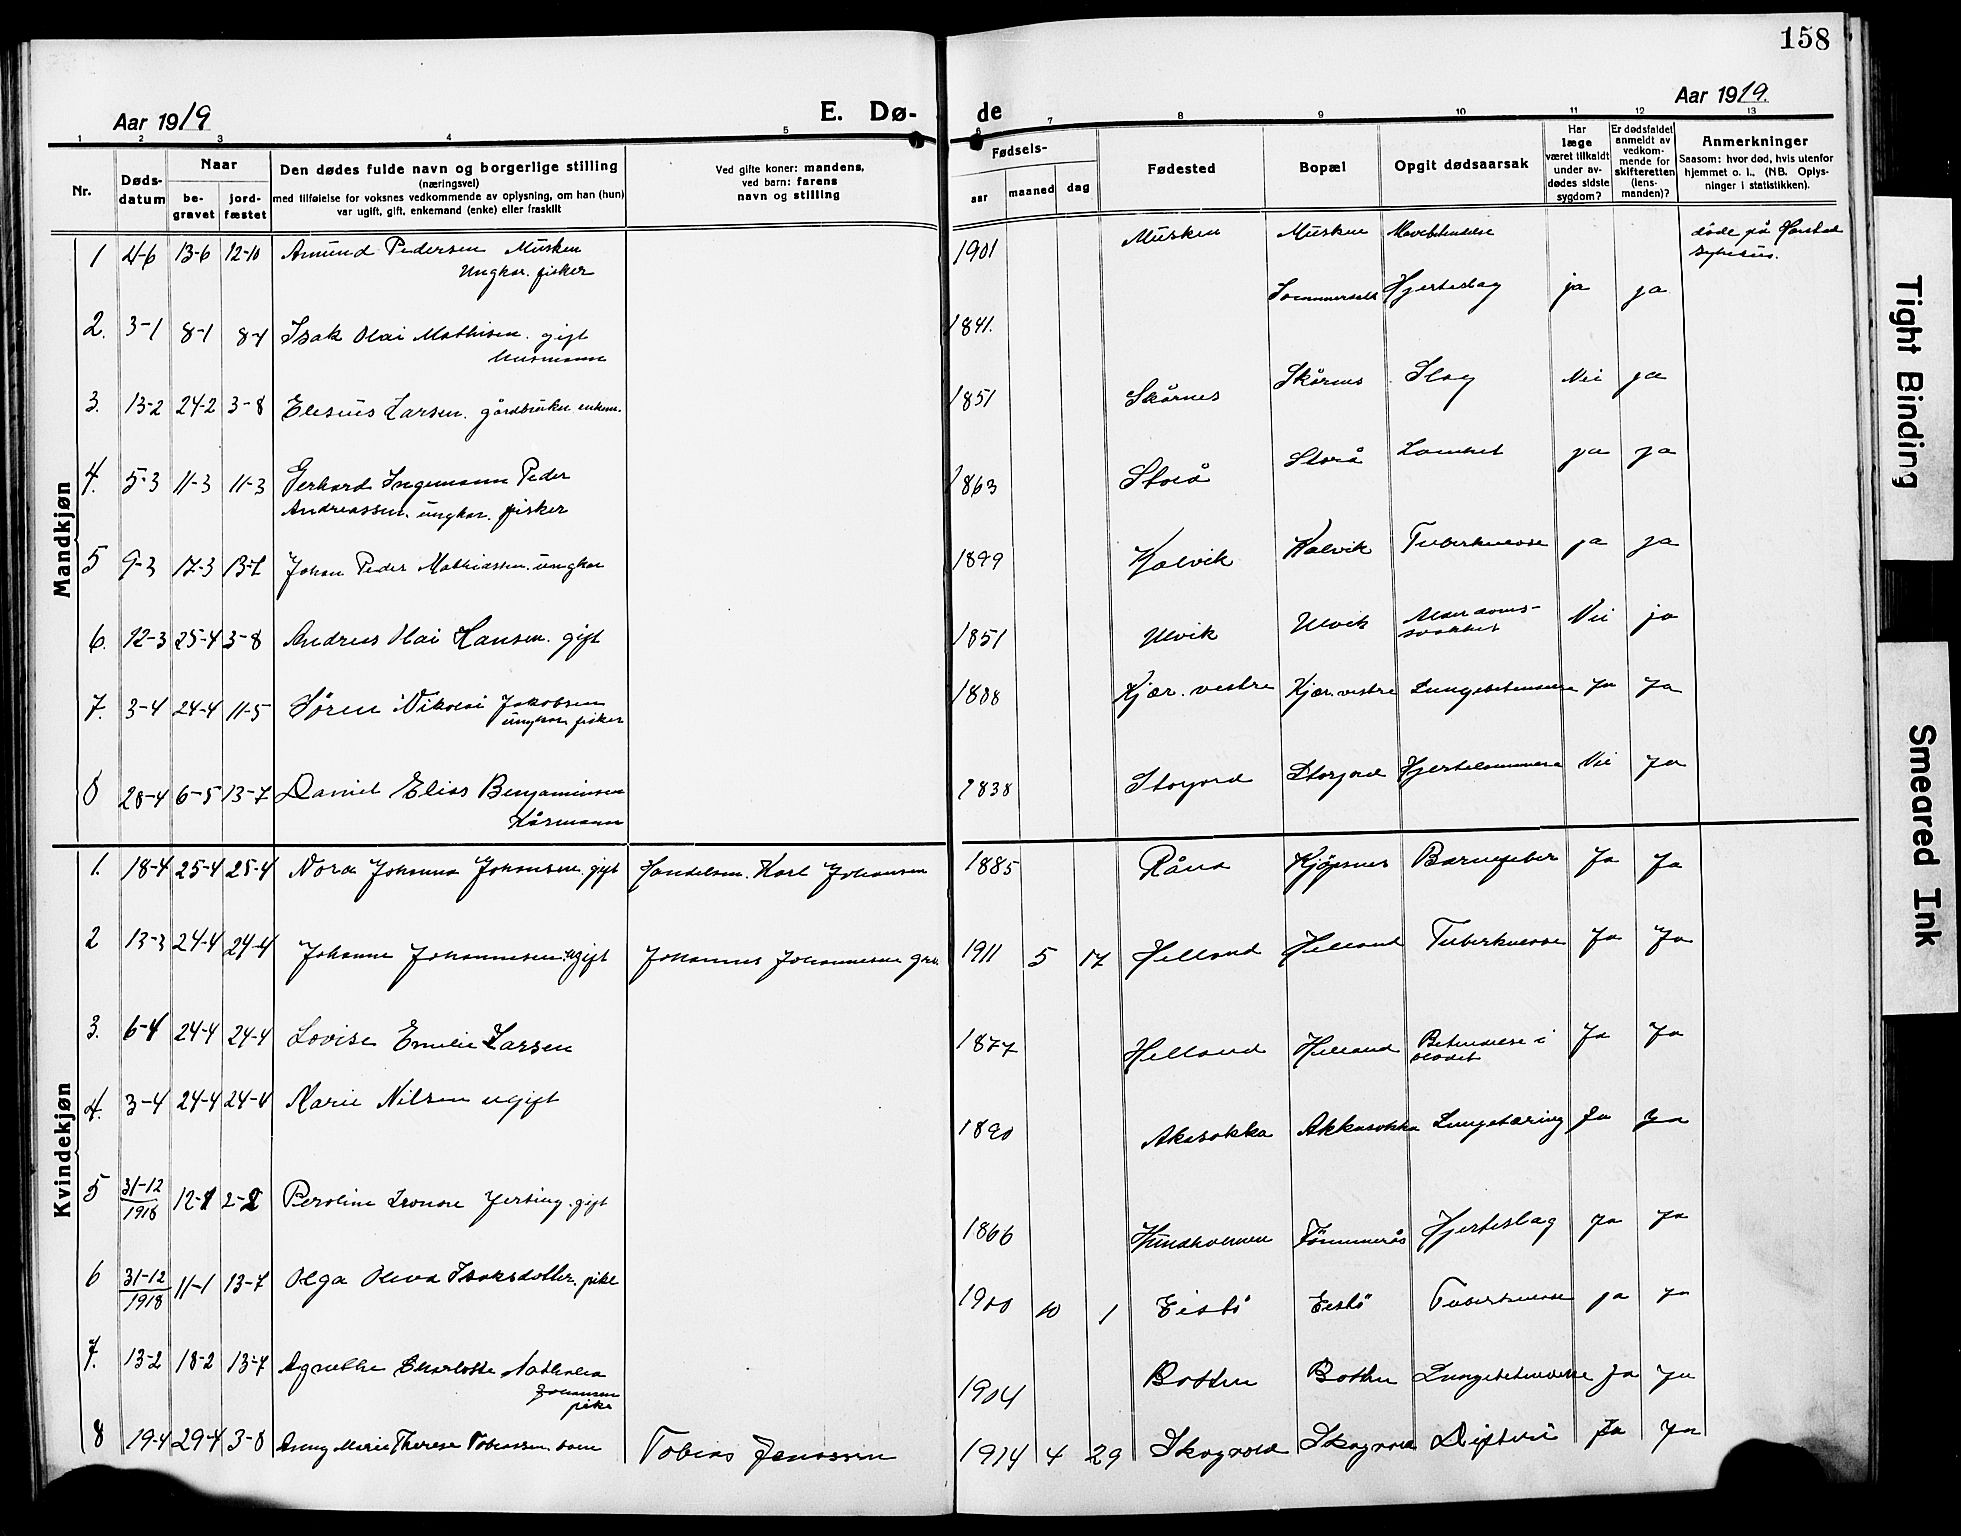 158
Aar 1919
E. Dø-
de
Aar 1919.
1 2 3 4 5 6 7 8 9 10 11 12 13
Nr.
Døds-
datum
Naar
be-
gravet
jord-
fæstet
Den dødes fulde navn og borgerlige stilling
(næringsvei)
med tilføielse for voksnes vedkommende av oplysning, om han (hun)
var ugift, gift, enkemand (enke) eller fraskilt
Ved gifte koner: mandens,
ved barn: farens
navn og stilling
Fødsels-
aar
maaned
dag
Fødested
Bopæl
Opgit dødsaarsak
Har
læge
været tilkaldt
under av-
dødes sidste
sygdom?
Er dødsfaldet
anmeldt av
vedkom-
mende for
skifteretten
(lens-
manden)?
Anmerkninger
Saasom: hvor død, hvis utenfor
hjemmet o. l.. (NB. Oplys-
ninger i statistikken).
Mandkjøn
1 4-6 13-6 12-10 Amund Pedersen Musken 1901 Musken Musken døde på Harstad
Ungkar. fisker sykehus.
2. 3-1 8-1 8-4 Isak Olai Mathisen. gift 1841. Hjerteslag ja ja
Husmann
3. 13-2 24-2 3-8 Elesius Larsen. gårdbruker enkem. 1851 Skårnes Skårnes Slag Nei ja
4. 5-3 11-3 11-3 Gerhard Ingemann Peder 1863 Storå Storå Lamhet ja ja
Andreassen. ungkar. fisker
5 9-3 17-3 13-7 Johan Peder Mathiassen. ungkar 1899 Kalvik Kalvik Tuberkulose ja ja
6. 12-3 25-4 3-8 Andreas Olai Hansen. gift 1851 Ulvik Ulvik Alderdoms-
svakhet Nei ja
7. 3-4 24-4 11-5 Søren Nikolai Jakobsen 1888 Kjær. vestre Kjær. vestre Lungebetennelse Ja Ja
ungkar fisker
8 28-4 6-5 13-7 Daniel Elias Benjaminsen 1838 Storjord Storjord Hjertelammelse Nei Ja
Kårmann
Kvindekjøn
1. 18-4 25-4 25-4 Nora Johanna Johansen. gift Handelsm. Karl Johansen 1885 Råna Kjøpsnes Barnefeber Ja Ja
2 13-3 24-4 24-4 Johanne Johannesen. ugift Johannes Johannesen 1911 5 17 Helland Helland Tuberkulose Ja Ja
3. 6-4 24-4 24-4 Lovise Emelie Larsen 1877 Helland Helland Betendelse i
blodet Ja Ja
4. 3-4 24-4 24-4 Marie Nilsen ugift 1890 Akasokka Akkasokka Lungetæring Ja Ja
5 31-12
1918 12-1 Peroline Leonore Jersing. gift 1866 Hundholmen Tømmerås Hjerteslag Ja Ja
6 31-12
1918 11-1 13-7 Olga Oliva Isaksdatter. pike 1900 10 1 Eistö Eistö Tuberkulose ja Ja
7. 13-2 18-2 13-7 Agnethe Charlotte Nathalia 1904 Botten Botten Lungebetennelse Ja Ja
Johansen
pike
8 19-4 29-4 3-8 Asny Marie Therese Tobiassen. barn Tobias Jenassen 1914 4 29 Skogvold Skogvold Difteri Ja Ja
Tight Binding
Smeared Ink